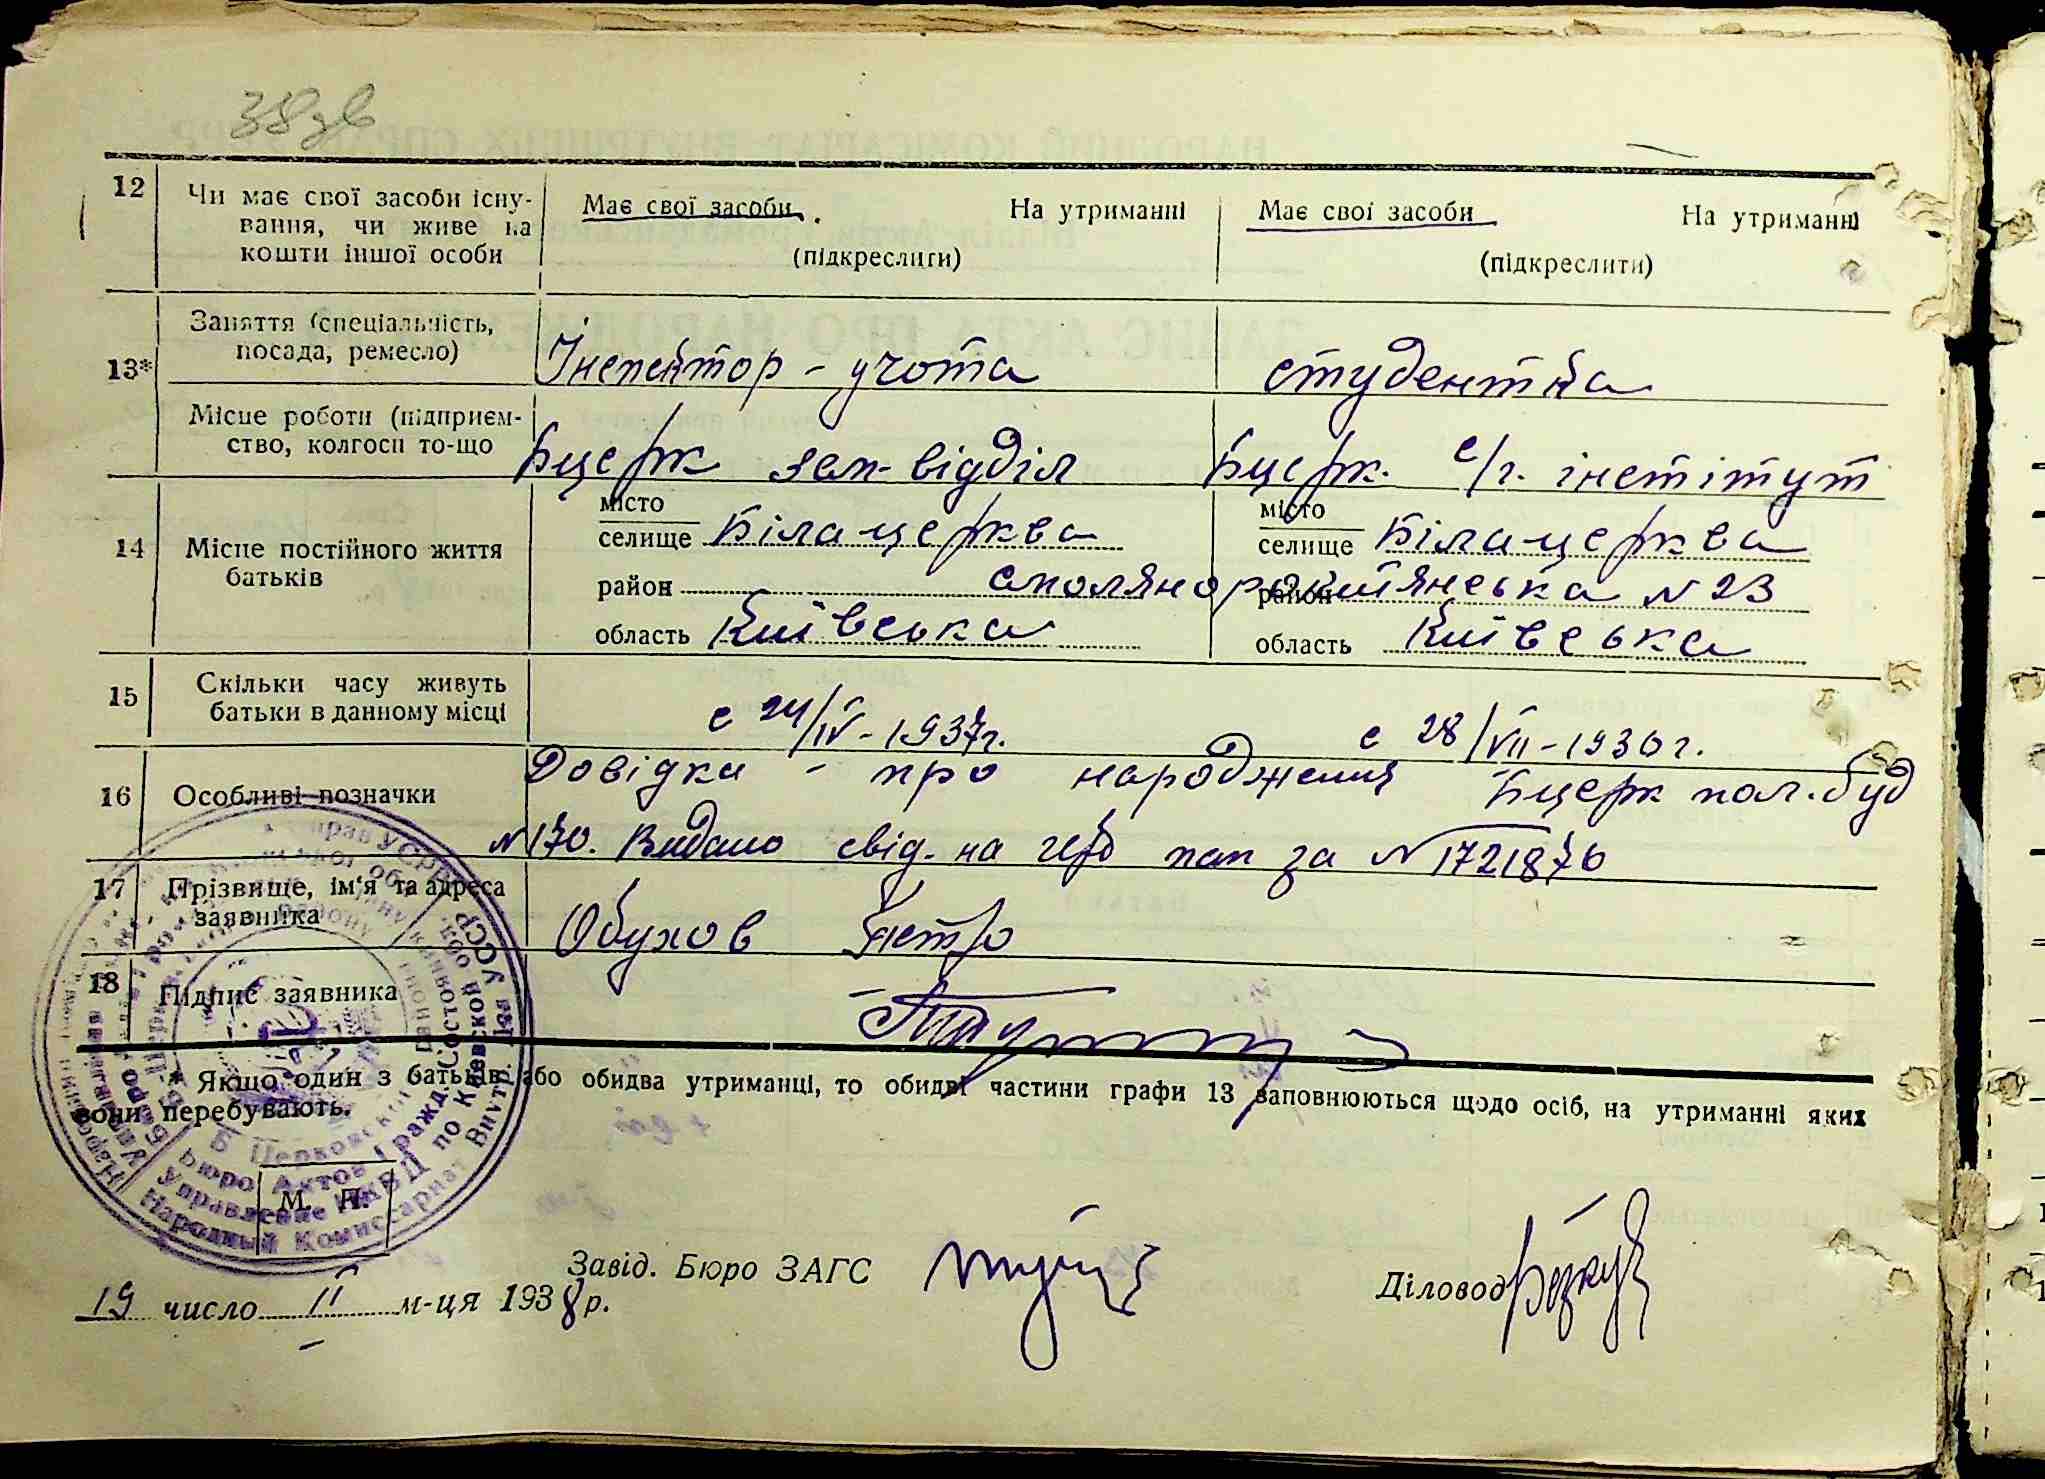 38зв
12
Чи має свої засоби існу-
вання, чи живе на
кошти іншої особи
Має свої засоби
На утриманні
(підкреслити)
Має свої засоби
На утриманні
(підкреслити)
13*
Заняття (спеціальність,
посада, ремесло)
Інспектор - учота
студентка
Місце роботи (підприєм-
ство, колгосп то-що
Бцерк зем-відділ
Бцерк. с/г. інстітут
14
Місце постійного життя
батьків
місто
селище Біла-церква
район
область Київська
місто
селище Біла-церква
район № 23
область Київська
15
Скільки часу живуть
батьки в данному місці
с 24/IV-1937г.
с 28/VII-1936г.
16
Особливі позначки
Довідка - про народження Бцерк пол.буд
№170. Видано свід. на за № 1721876
17
Прізвище, ім'я та адреса
заявника
Обухов Петро
18
Підпис заявника
* Якщо один з батьків або обидва утриманці, то обидві частини графи 13 заповнюються щодо осіб, на утриманні яких
вони перебувають.
Народный Комиссариат Внутр. Дел УССР
Управление НКВД по Киевской обл.
Бюро Актов Гражд. Состоян.
М. П.
Завід. Бюро ЗАГС
Діловод
19 число II м-ця 1938 р.